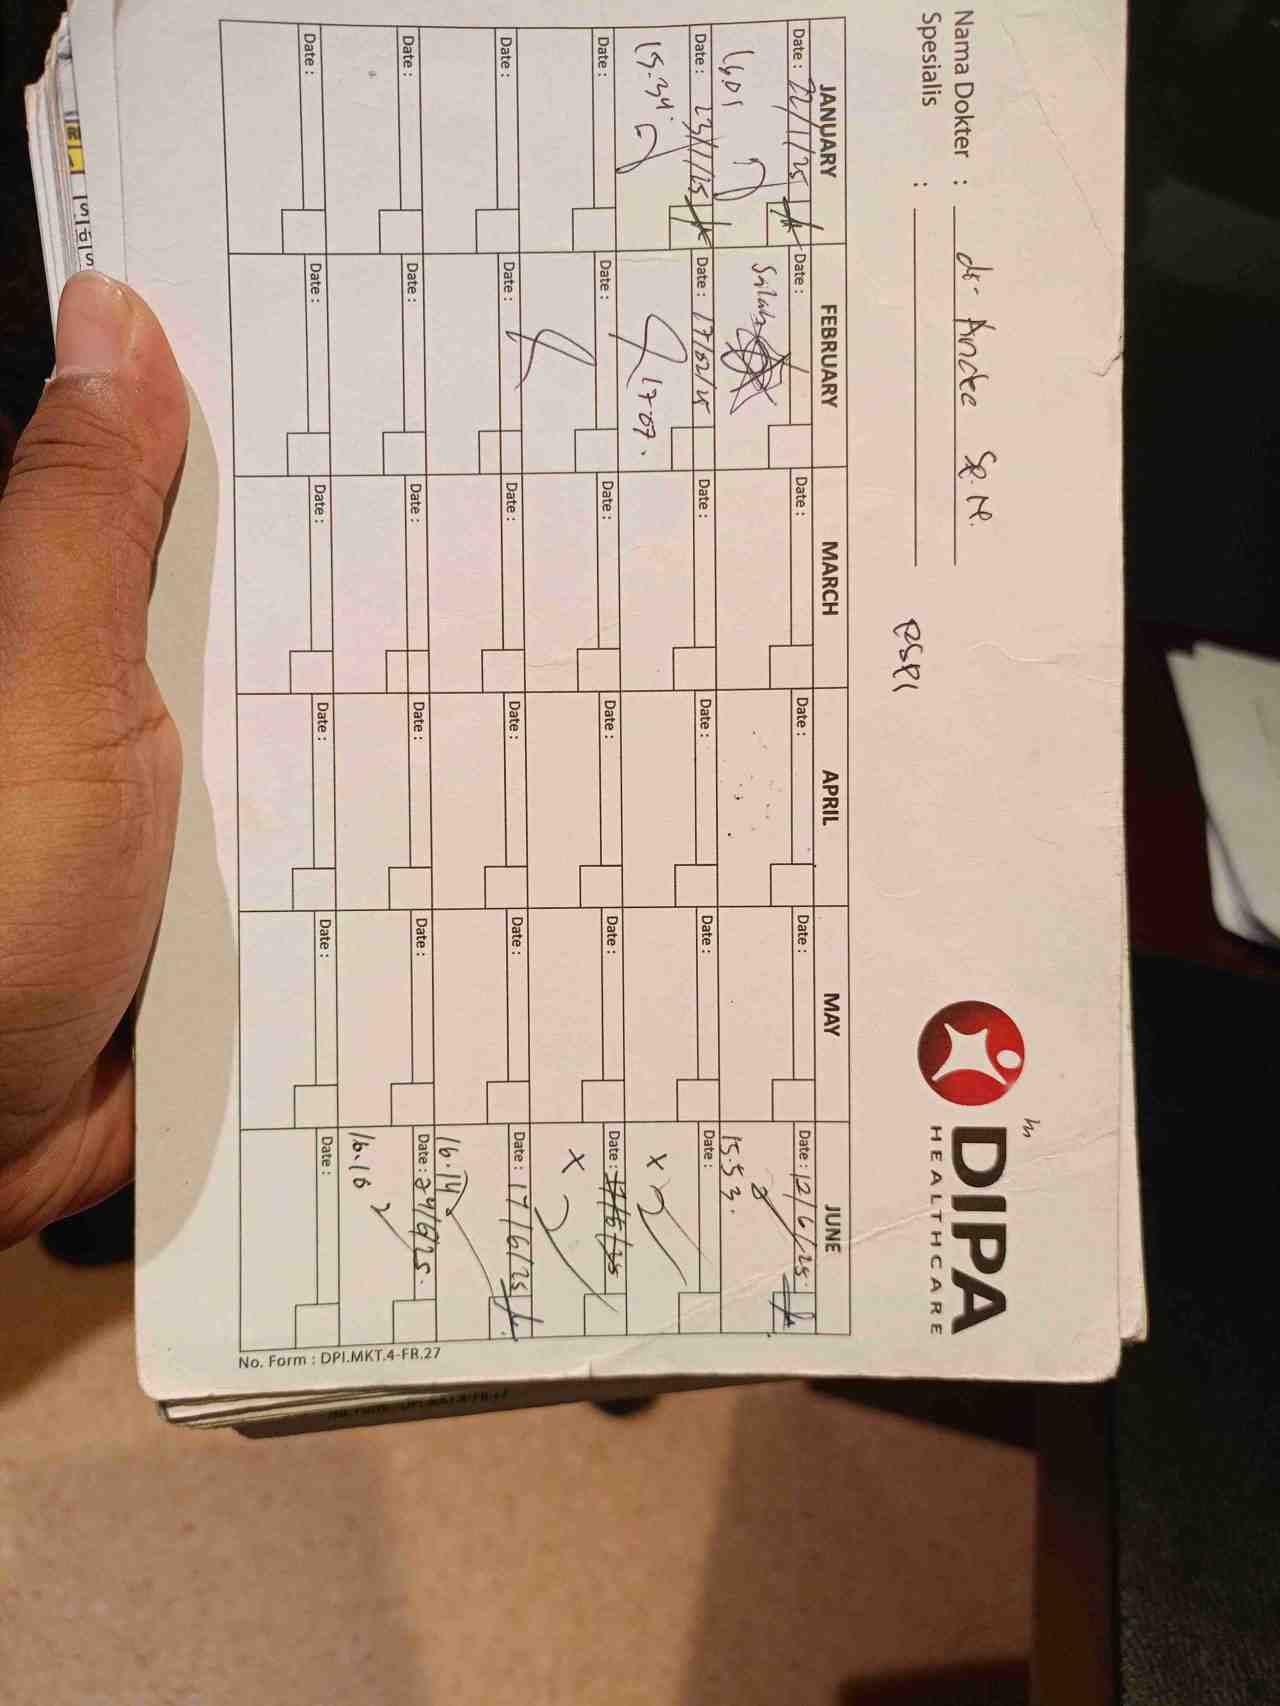 Nama Dokter : dr. Andre Sp.N.
Spesialis :
RSPI
DIPA
HEALTHCARE
JANUARY FEBRUARY MARCH APRIL MAY JUNE
Date : 22/1/25 Date : Date : Date : Date : Date : 12/6/25.
16.01 Salah 15.53.
Date : 23/1/25 Date : 17/02/25 Date : Date : Date : Date :
15.34. 17.07. X
Date : Date : Date : Date : Date : Date : 17/6/25
X
Date : Date : Date : Date : Date : Date : 17/6/25
16.14
Date : Date : Date : Date : Date : Date : 24/6/25.
16.16
Date : Date : Date : Date : Date : Date :
No. Form : DPI.MKT.4-FR.27